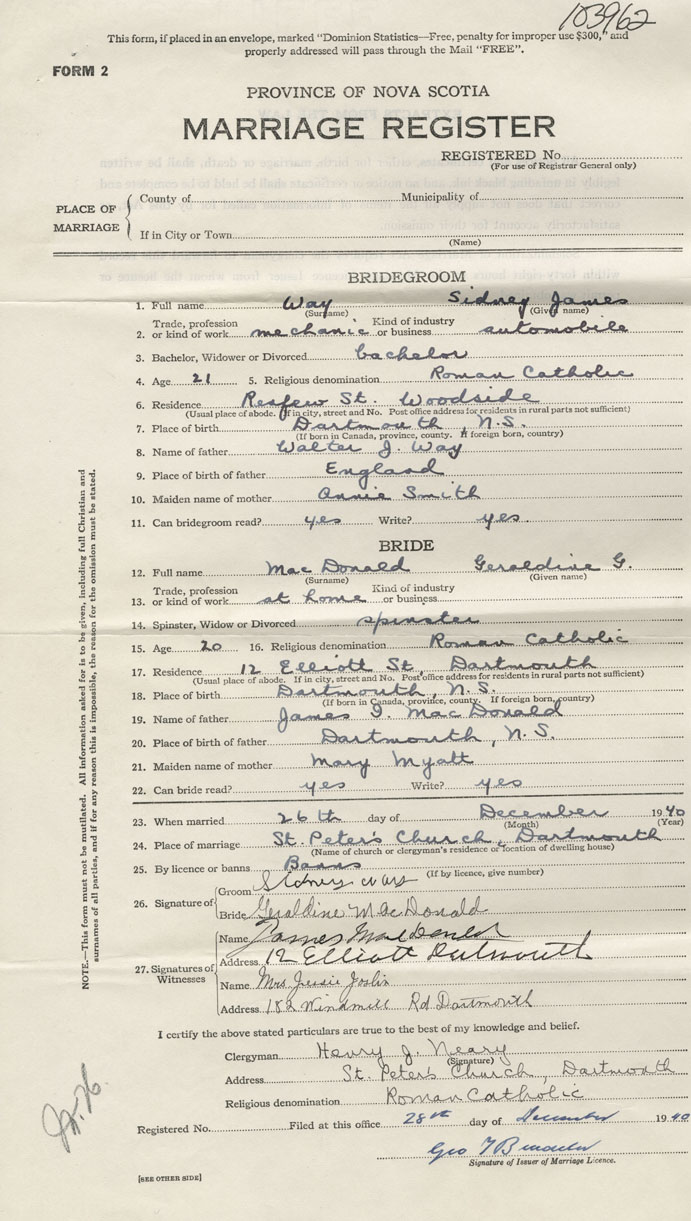 103962
This form, if placed in an envelope, marked "Dominion Statistics—Free, penalty for improper use $300," and
properly addressed will pass through the Mail "FREE".
FORM 2
PROVINCE OF NOVA SCOTIA
MARRIAGE REGISTER
REGISTERED No.
(For use of Registrar General only)
PLACE OF MARRIAGE
County of Municipality of
If in City or Town
(Name)
BRIDEGROOM
1. Full name Way Sidney James
(Surname) (Given name)
2. Trade, profession or kind of work mechanic Kind of industry or business automobile
3. Bachelor, Widower or Divorced bachelor
4. Age 21 5. Religious denomination Roman Catholic
6. Residence Renfew St. Woodside
(Usual place of abode. If in city, street and No. Post office address for residents in rural parts not sufficient)
7. Place of birth Dartmouth, N.S.
(If born in Canada, province, county. If foreign born, country)
8. Name of father Walter J. Way
9. Place of birth of father England
10. Maiden name of mother Annie Smith
11. Can bridegroom read? yes Write? yes.
BRIDE
12. Full name Mac Donald Geraldine G.
(Surname) (Given name)
13. Trade, profession or kind of work at home Kind of industry or business
14. Spinster, Widow or Divorced spinster
15. Age 20 16. Religious denomination Roman Catholic
17. Residence 12 Elliott St, Dartmouth
(Usual place of abode. If in city, street and No. Post office address for residents in rural parts not sufficient)
18. Place of birth Dartmouth, N.S.
(If born in Canada, province, county. If foreign born, country)
19. Name of father James Mac Donald
20. Place of birth of father Dartmouth, N.S.
21. Maiden name of mother Mary Myatt
22. Can bride read? yes Write? yes
23. When married 26th day of December 1940
(Month) (Year)
24. Place of marriage St. Peter's Church, Dartmouth
(Name of church or clergyman's residence or location of dwelling house)
25. By licence or banns Banns
(If by licence, give number)
26. Signature of
Groom Sidney Way
Bride Geraldine MacDonald
27. Signatures of Witnesses
Name James MacDonald
Address 12 Elliott Dartmouth
Name Mrs. Jessie Joslin
Address 182 Windmill Rd Dartmouth
I certify the above stated particulars are true to the best of my knowledge and belief.
Clergyman Henry J. Neary
(Signature)
Address St. Peter's Church, Dartmouth
Religious denomination Roman Catholic
Registered No. Filed at this office 28th day of December 1940
Geo
Signature of Issuer of Marriage Licence.
[SEE OTHER SIDE]
NOTE.—This form must not be mutilated. All information asked for is to be given, including full Christian and
surnames of all parties, and if for any reason this is impossible, the reason for the omission must be stated.